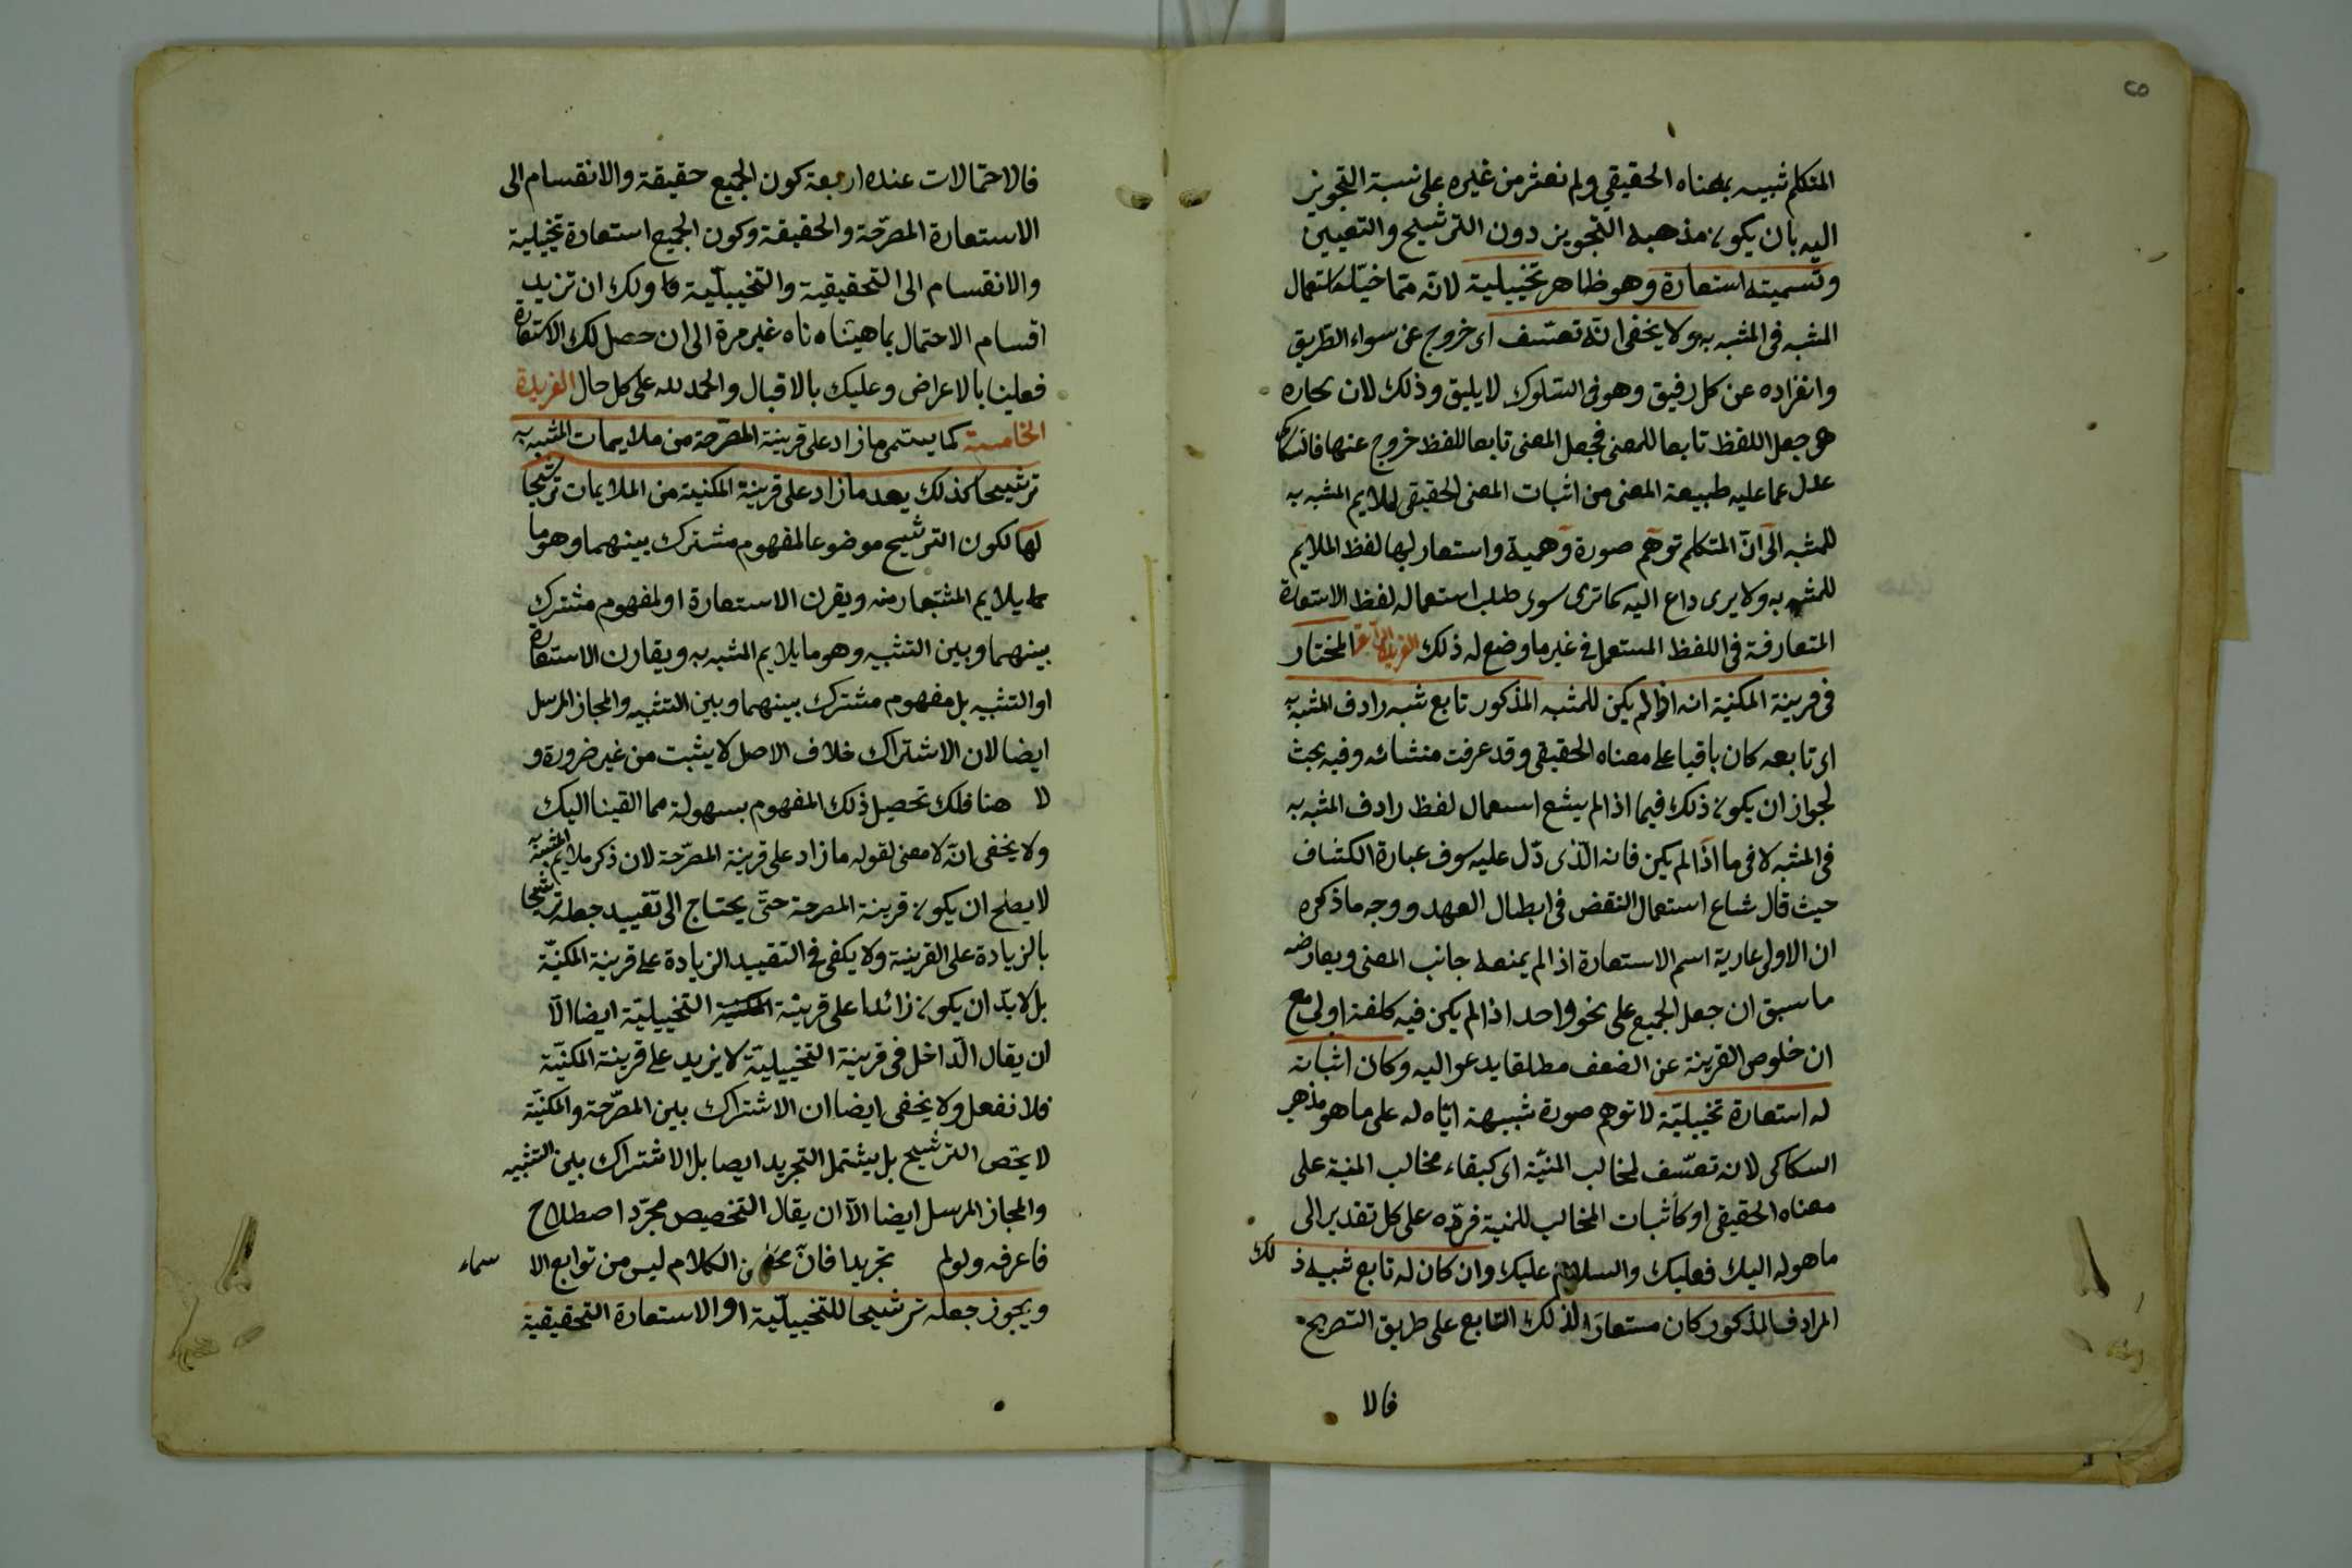 ٢٥
المتكلم شبيه بمعناه الحقيقي ولم نعثر من غيره على نسبة التجويز
اليه بان يكون مذهبه التجويز دون الترشيح والتعيين
وتسميته استعارة وهو ظاهر تخييلية لانه مما خيل استعمال
المشبه في المشبه به ولا يخفى انه تعسف اى خروج عن سواء الطريق
وانفراده عن كل رفيق وهو في السلوك لا يليق وذلك لان مجاره
هو جعل اللفظ تابعا للمعنى فجعل المعنى تابعا للفظ خروج عنها فالسكاكى
عدل عما عليه طبيعة المعنى من اثبات المعنى الحقيقي لملايم المشبه به
للمشبه الى ان المتكلم توهم صورة وهمية واستعار لها لفظ الملايم
للمشبه به ولا يرى داع اليه كما ترى سوى طلب استعماله لفظ الاستعارة
المتعارفة في اللفظ المستعمل في غير ما وضع له ذلك الفريدة الرابعة المختار
في قرينة المكنية انه اذا لم يكن للمشبه المذكور تابع شبه رادف المشبه به
اى تابعه كان باقيا على معناه الحقيقي وقد عرفت منشائه وفيه بحث
لجواز ان يكون ذلك فيما اذا لم يشع استعمال لفظ رادف المشبه به
في المشبه لا في ما اذا لم يكن فانه الذى دل عليه سوف عبارة الكشاف
حيث قال شاع استعمال النقض في ابطال العهد ووجه ما ذكره
ان الاولى عارية اسم الاستعارة اذا لم يمنعه جانب المعنى ويعارضه
ما سبق ان جعل الجميع على نحو واحد اذا لم يكن فيه كلفة اولى مع
ان خلوص القرينة عن الضعف مطلقا يدعو اليه وكان اثباته
له استعارة تخييلية لا توهم صورة شبيهة اياه له على ما هو مذهب
السكاكى لانه تعسف لمخالب المنية اى كبقاء مخالب المنية على
معناه الحقيقي او كاثبات المخالب للمنية فرده على كل تقدير الى
ما هو له اليك فعليك والسلام عليك وان كان له تابع شبيه ذلك
المرادف المذكور كان مستعارا لذلك التابع على طريق التصريح
فالا
فالاحتمالات عنده اربعة كون الجميع حقيقة والانقسام الى
الاستعارة المصرحة والحقيقة وكون الجميع استعارة تخييلية
والانقسام الى التحقيقية والتخييلية ولك ان تزيد
اقسام الاحتمال بما هيئناه غير مرة الى ان حصل لك الاستعارة
فعلينا بالاعراض وعليك بالاقبال والحمد لله على كل حال الفريدة
الخامسة كما يسمى ما زاد على قرينة المصرحة من ملايمات المشبه به
ترشيحا كذلك يعد ما زاد على قرينة المكنية من الملايمات ترشيحا
لها لكون الترشيح موضوعا لمفهوم مشترك بينهما وهو ما
يلايم المستعار منه ويقرن الاستعارة او لمفهوم مشترك
بينهما وبين التشبيه وهو ما يلايم المشبه به ويقارن الاستعارة
او التشبيه بل مفهوم مشترك بينهما وبين التشبيه والمجاز المرسل
ايضا لان الاشتراك خلاف الاصل لا يثبت من غير ضرورة و
لا هنا فلك تحصيل ذلك المفهوم بسهولة مما القينا اليك
ولا يخفى انه لا معنى لقوله ما زاد على قرينة المصرحة لان ذكر ملايم المشبه به
لا يصلح ان يكون قرينة المصرحة حتى يحتاج الى تقييد جعله ترشيحا
بالزيادة على القرينة ولا يكفى في التقييد الزيادة على قرينة المكنية
بل لا بد ان يكون زائدا على قرينة المكنية التخييلية ايضا الا
ان يقال الداخل في قرينة التخييلية لا يزيد على قرينة المكنية
فلا نفعل ولا يخفى ايضا ان الاشتراك بين المصرحة والمكنية
لا يختص الترشيح بل يشتمل التجريد ايضا بل الاشتراك بين التشبيه
والمجاز المرسل ايضا الا ان يقال التخصيص مجرد اصطلاح
فاعرفه ولو لم تجريدا فان الكلام ليس من توابع الا سماء
ويجوز جعله ترشيحا للتخييلية او الاستعارة التحقيقية